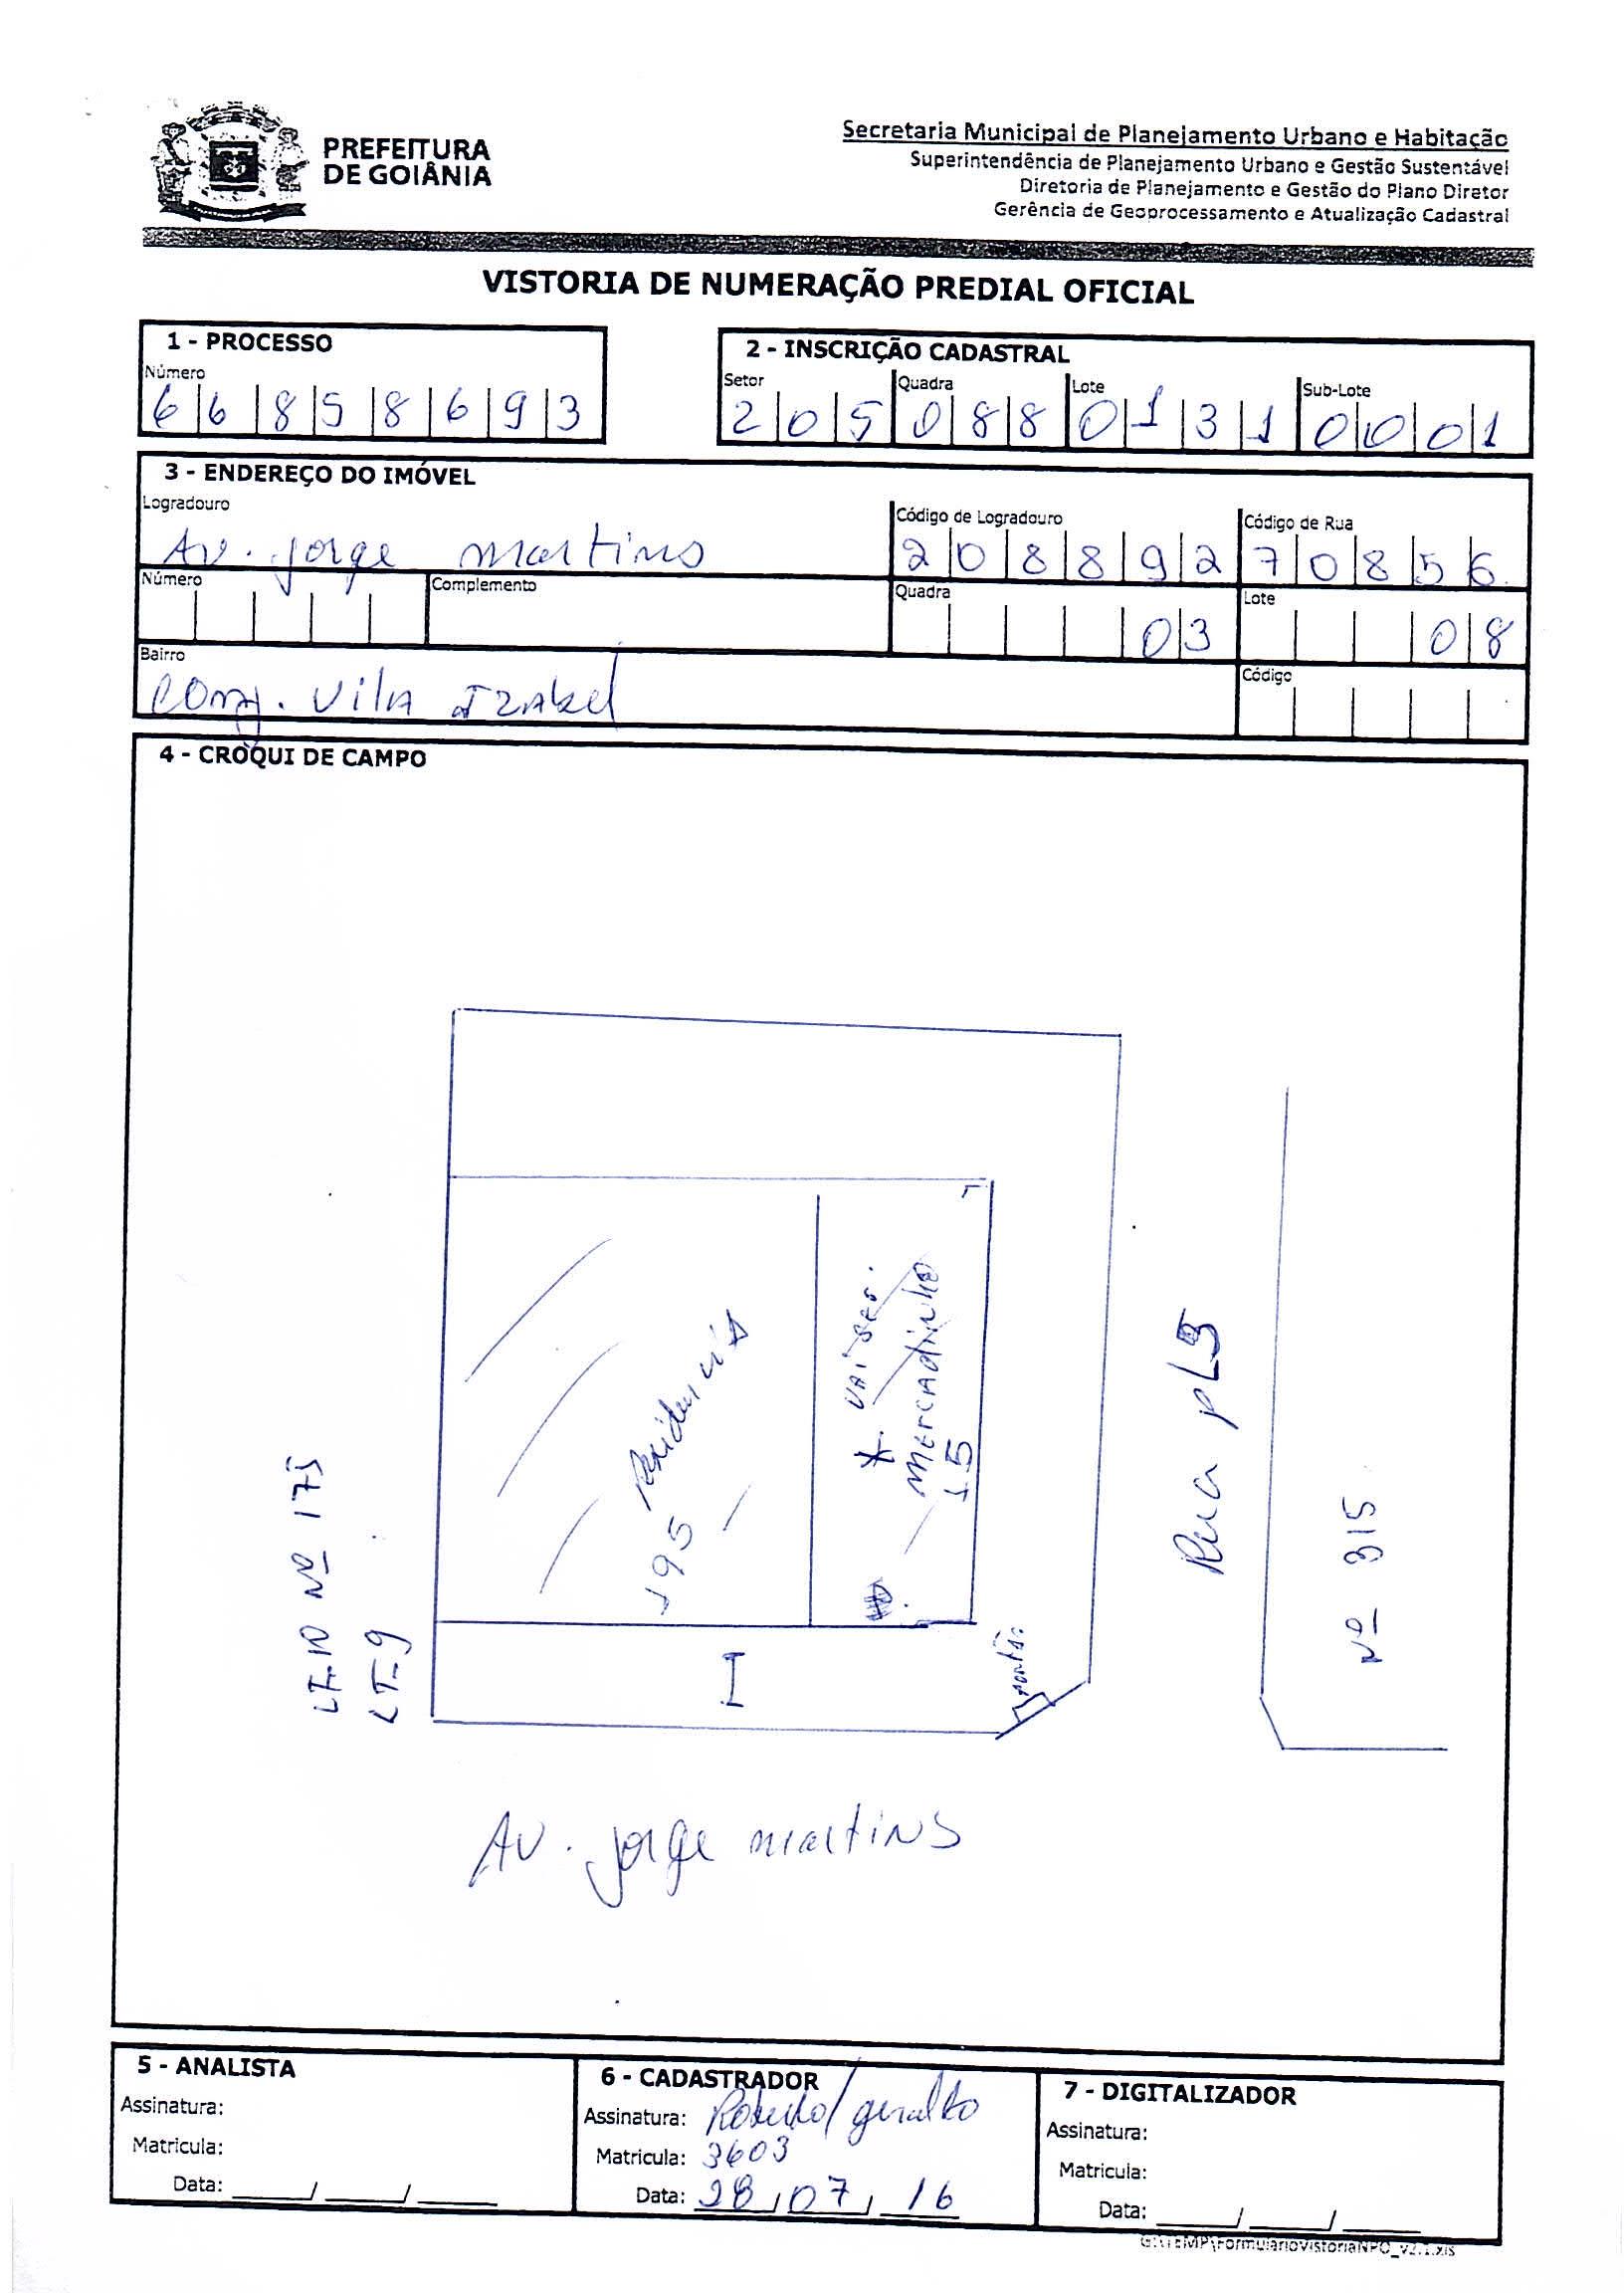 PREFEITURA
DE GOIÂNIA
Secretaria Municipal de Planejamento Urbano e Habitação
Superintendência de Planejamento Urbano e Gestão Sustentável
Diretoria de Planejamento e Gestão do Plano Diretor
Gerência de Geoprocessamento e Atualização Cadastral
VISTORIA DE NUMERAÇÃO PREDIAL OFICIAL
1 - PROCESSO
Número
66858693
2 - INSCRIÇÃO CADASTRAL
Setor Quadra Lote Sub-Lote
205 088 0131 0001
3 - ENDEREÇO DO IMÓVEL
Logradouro Código de Logradouro Código de Rua
Av. Jorge martins 208892 70856
Número Complemento Quadra Lote
03 08
Bairro Código
Conj. Vila Izabel
4 - CROQUI DE CAMPO
LT-10 Nº 175
LT-9
195 Residencia
* VAI SER.
MERCADINHO
15
I
portão
Rua PL5
Nº 315
Av. Jorge martins
5 - ANALISTA
Assinatura:
Matricula:
Data: ____/____/____
6 - CADASTRADOR
Assinatura: Roberto/geraldo
Matricula: 3603
Data: 28/07/16
7 - DIGITALIZADOR
Assinatura:
Matricula:
Data: ____/____/____
G:\TEMP\FormularioVistoriaNPO_v2.1.xls